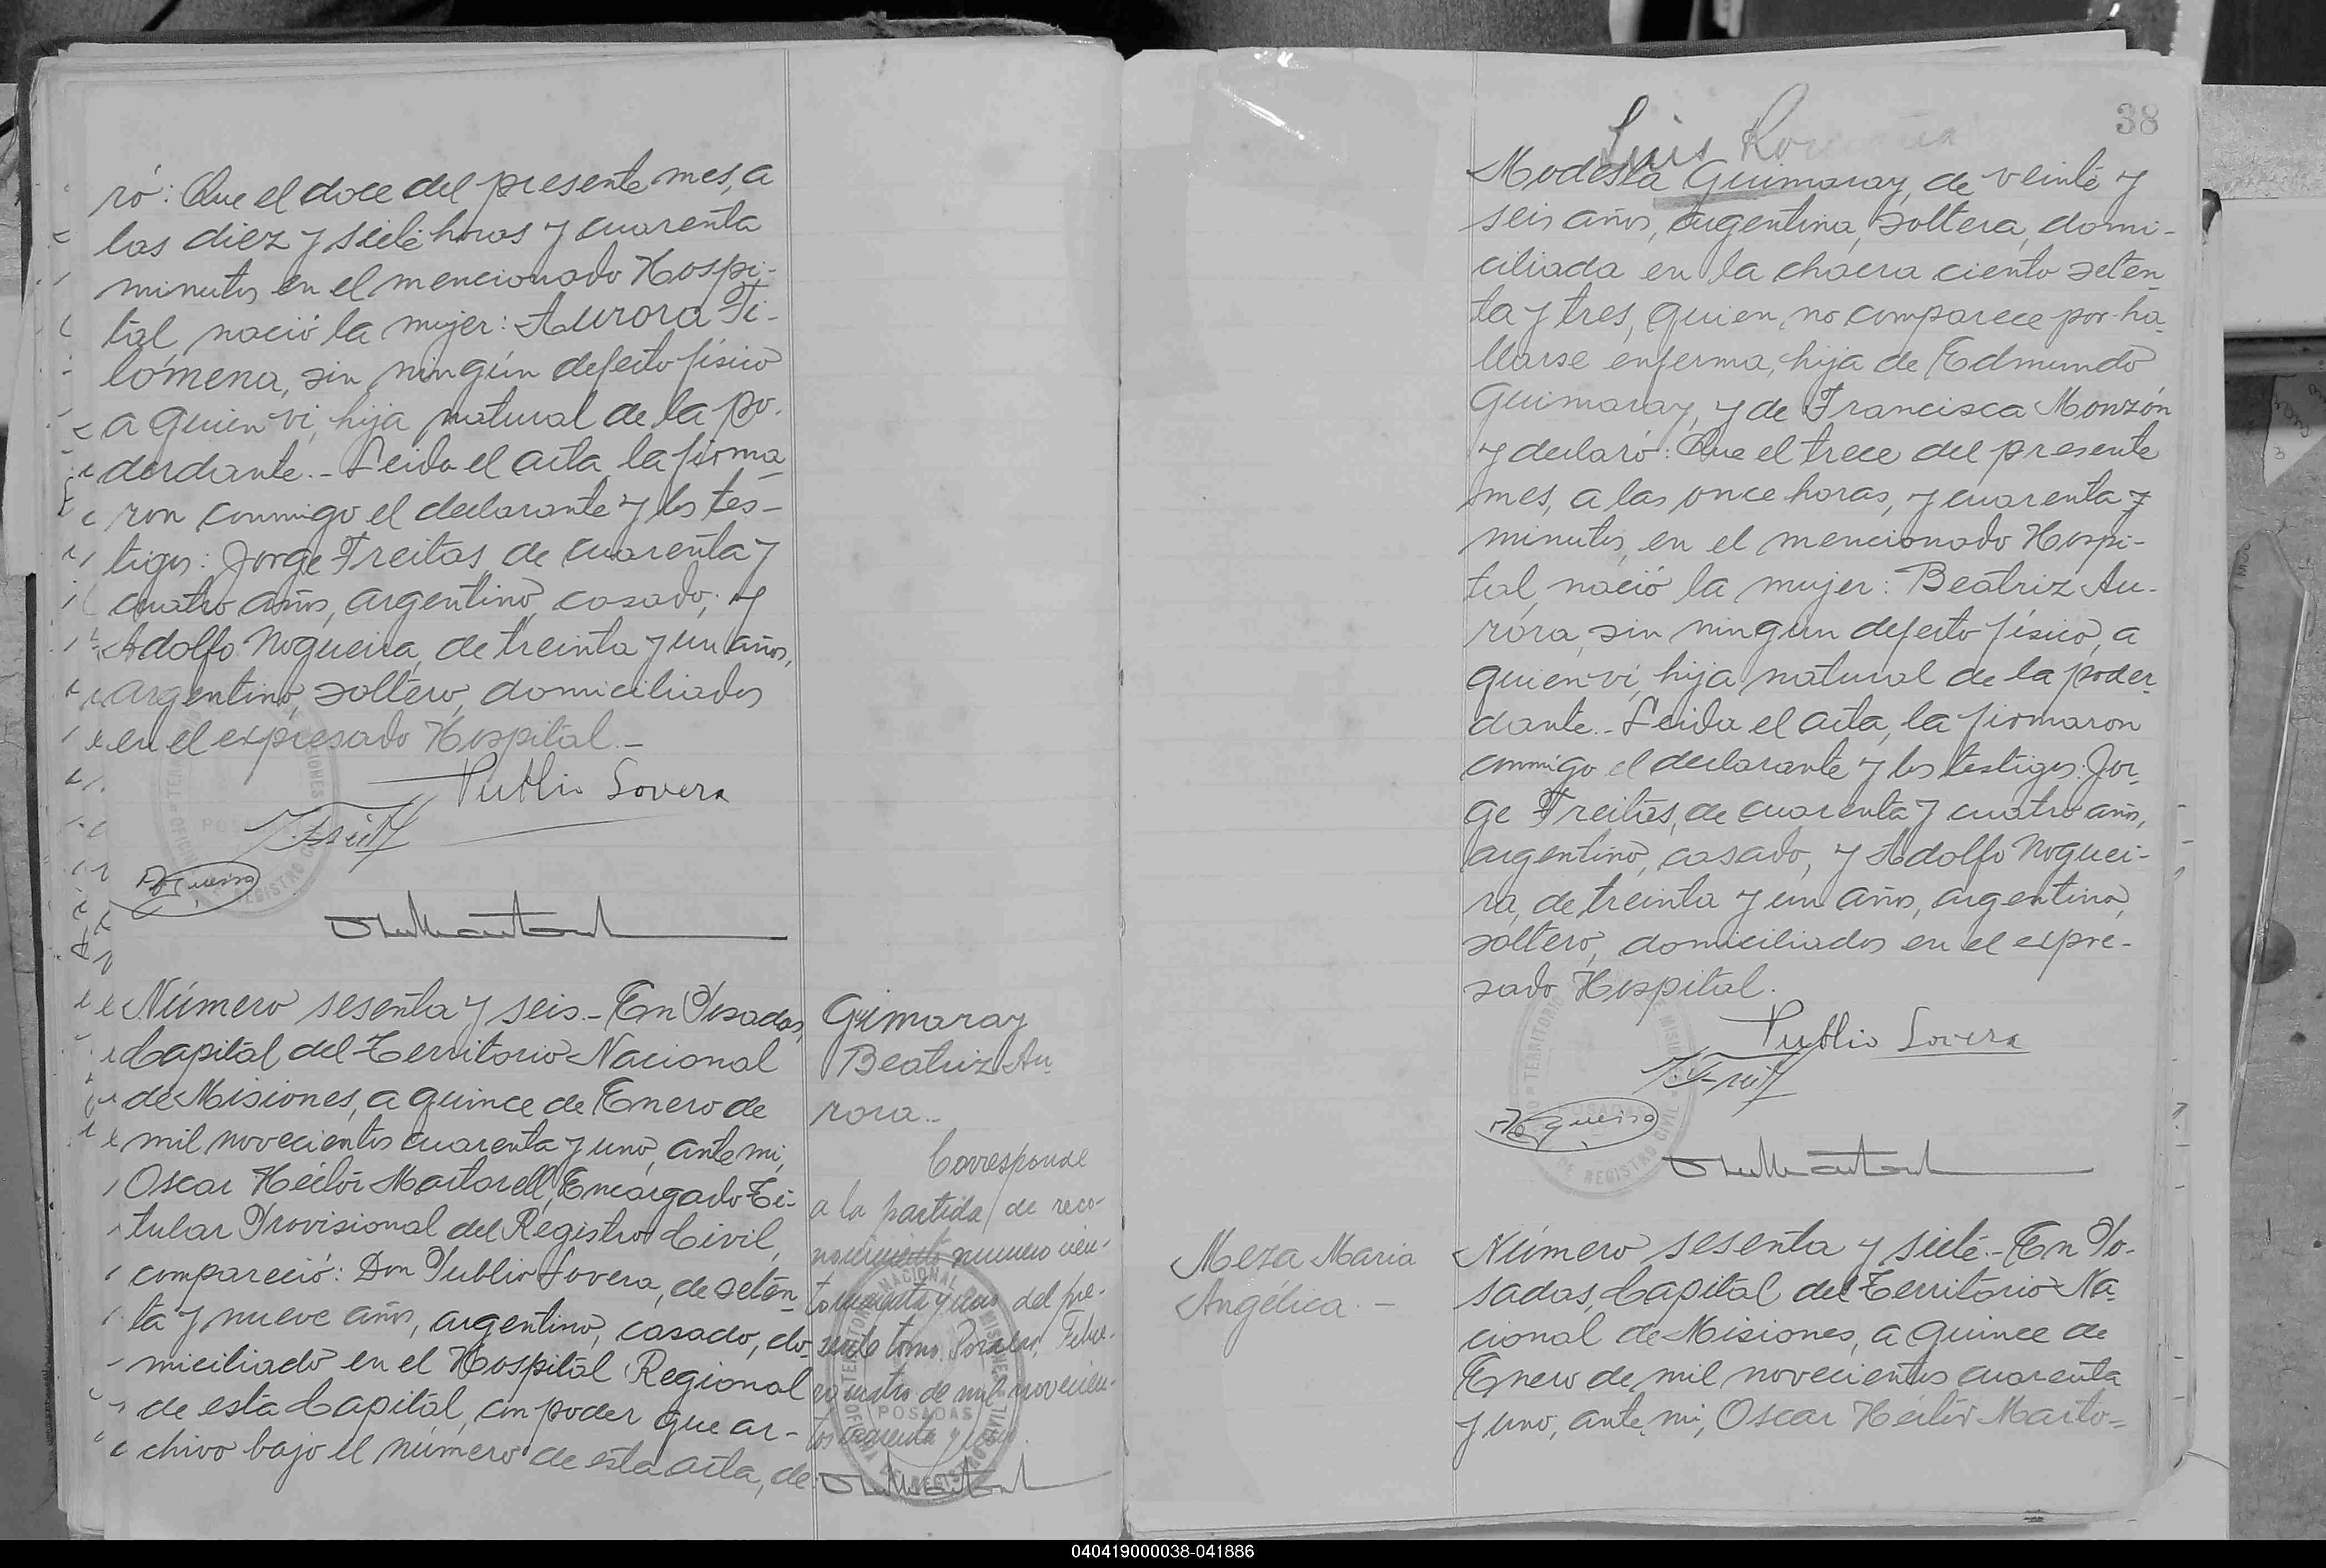 ró: Que el doce del presente mes, a
las diez y siete horas y cuarenta
minutos en el mencionado Hospi-
tal nació la mujer: Aurora Fi-
lomena, sin ningún defecto físico
a quien vi, hija natural de la po-
derdante.- Leida el acta la firma
ron conmigo el declarante y los tes-
tigos: Jorge Freitas, de cuarenta y
cuatro años, argentino, casado; y
Adolfo Nogueira, de treinta y un años,
argentino, soltero, domiciliados
en el expresado Hospital.-
Publio Lovera
Número sesenta y seis.- En Posadas,
Capital del Territorio Nacional
de Misiones, a quince de Enero de
mil novecientos cuarenta y uno, ante mi,
Oscar Héctor Martorell, Encargado Ti-
tular Provisional del Registro Civil,
compareció: Don Publio Lovera, de seten
ta y nueve años, argentino, casado, do-
miciliado en el Hospital Regional
de esta Capital, con poder que ar-
chivo bajo el número de esta acta, de
Gimaray
Beatriz Au
rora.-
Corresponde
a la partida de reco-
nocimiento numero cien-
to y uno del pre-
sente tomo. Posadas, Febre-
ro cuatro de mil novecien-
tos cuarenta y uno
NACIONAL
POSADAS
38
Luis
Modesta Guimaray, de veinte y
seis años, argentina, soltera, domi-
ciliada en la chacra ciento seten
ta y tres, quien no comparece por ha-
llarse enferma, hija de Edmundo
Guimaray, y de Francisca Monzón
y declaró: Que el trece del presente
mes, a las once horas, y cuarenta y
minutos, en el mencionado Hospi-
tal, nació la mujer: Beatriz Au-
rora, sin ningun defecto físico, a
quien vi, hija natural de la poder
dante.- Leida el acta, la firmaron
conmigo el declarante y los testigos: Jor
ge Freitas, de cuarenta y cuatro años,
argentino, casado, y Adolfo Noguei-
ra, de treinta y un años, argentino,
soltero, domiciliados en el expre-
sado Hospital.
Publio Lovera
Meza Maria
Angélica.-
Número sesenta y siete.- En Po-
sadas, Capital del Territorio Na
cional de Misiones, a quince de
Enero de mil novecientos cuarenta
y uno, ante mi, Oscar Héctor Marto-
040419000038-041886